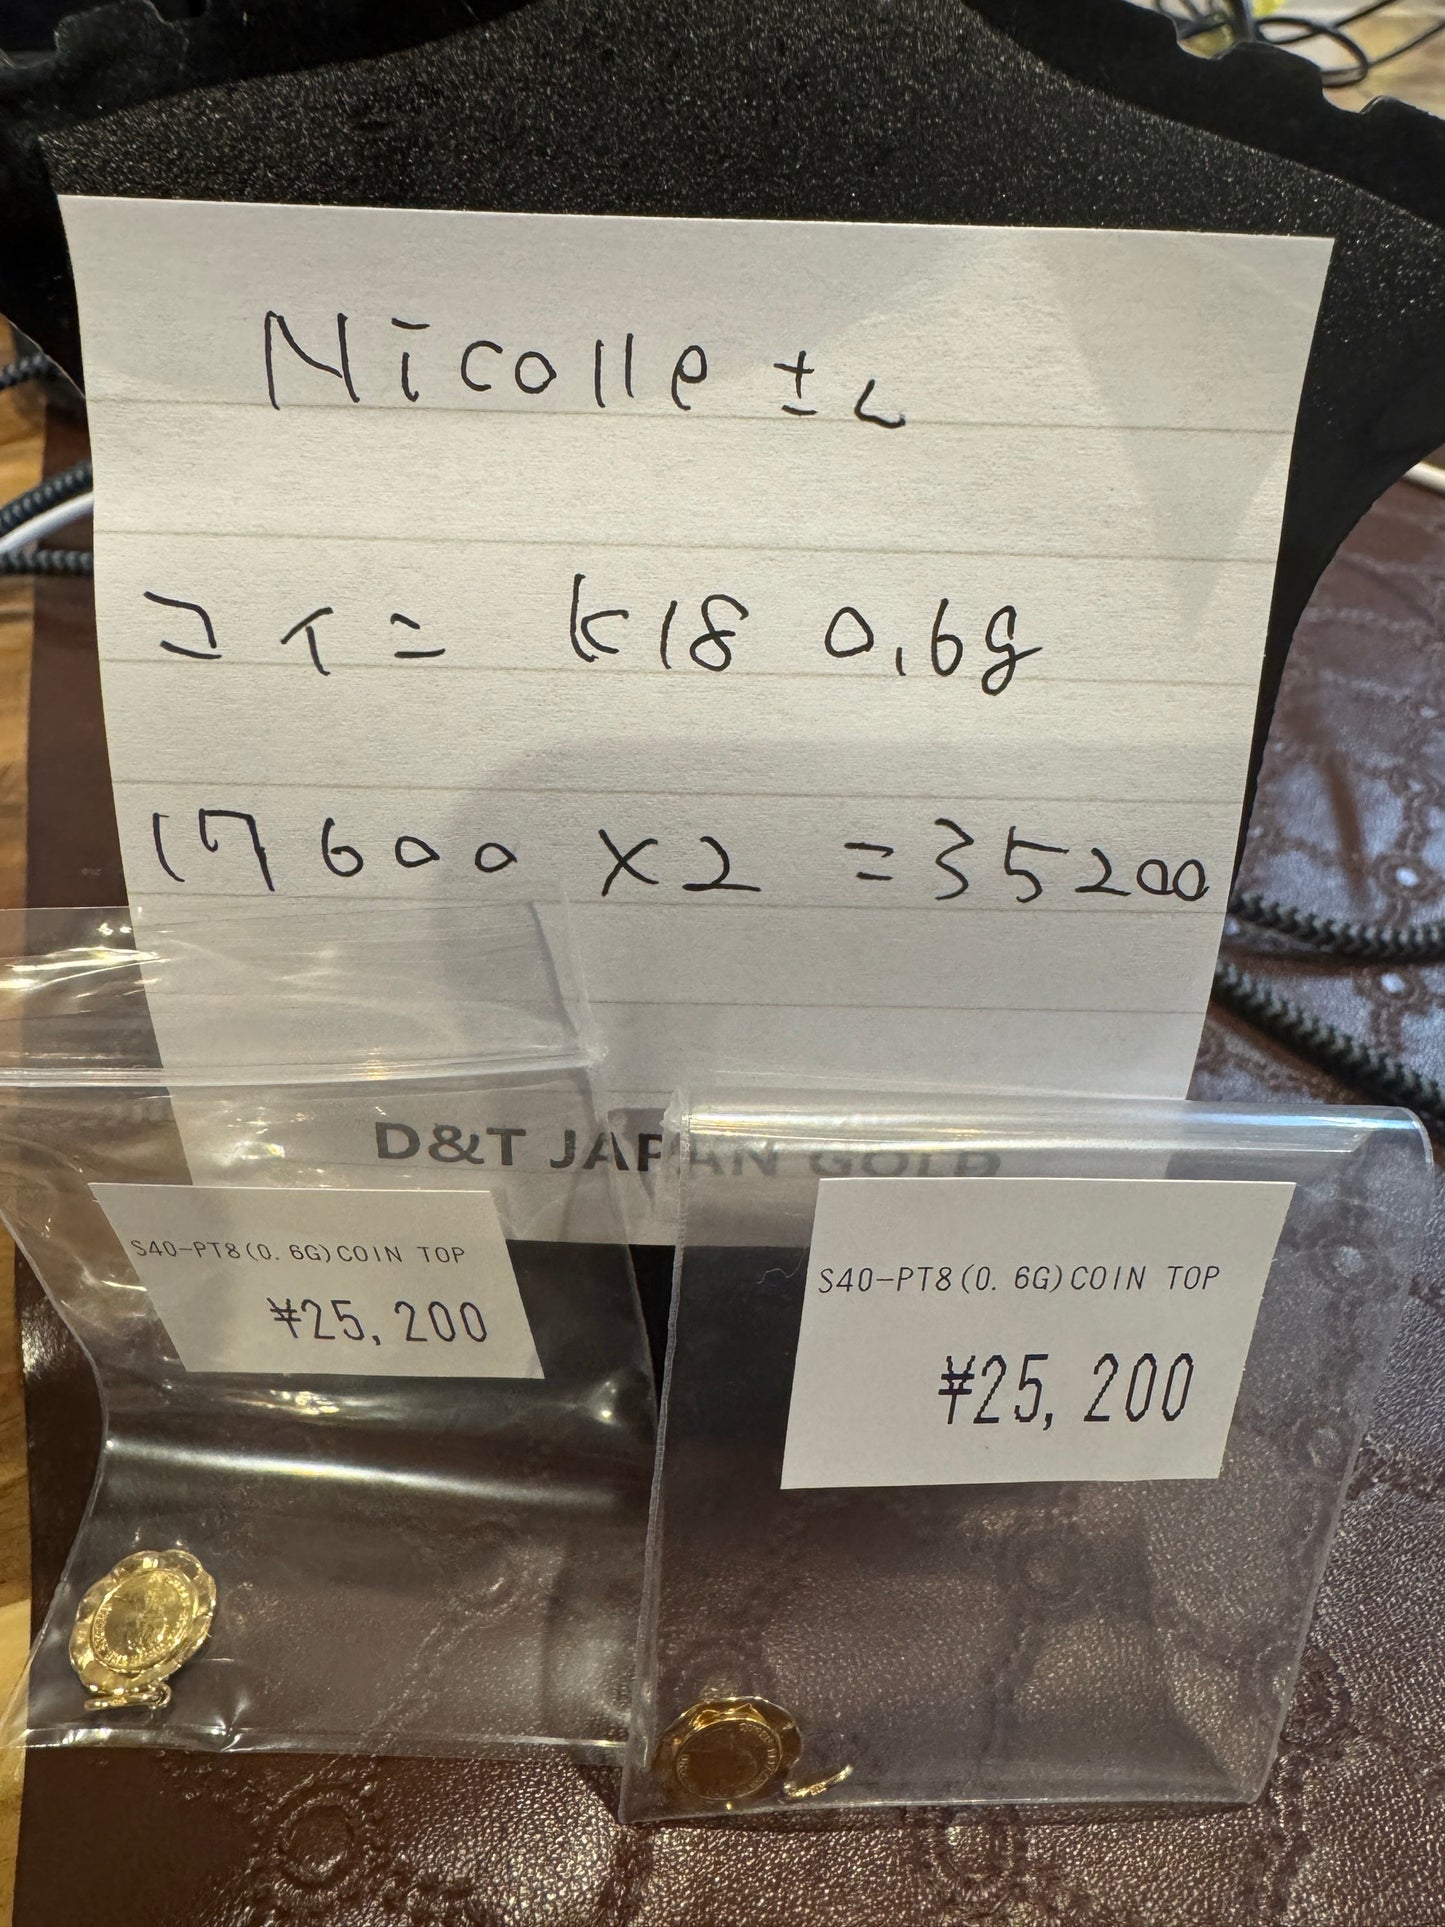 Nicolle さん
コイン K18 0.6g
17600 × 2 = 35200
D&T JAPAN GOLD
S40-PT8(0.6G)COIN TOP
¥25,200
S40-PT8(0.6G)COIN TOP
¥25,200